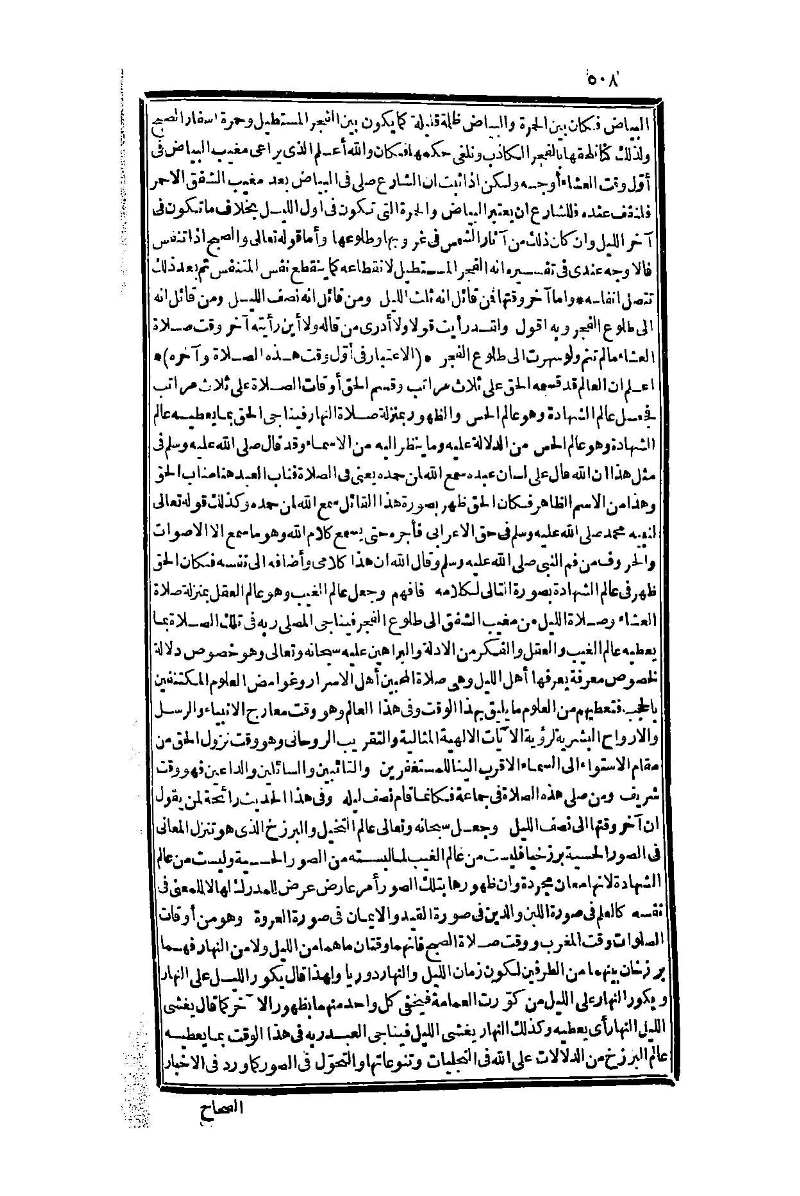 ٥٠٨
البياض فكان بين الحمرة والبياض ظلمة قليلة كما يكون بين الفجر المستطيل وحمرة اسفار الصبح
ولذلك كنا نلحقها بالفجر الكاذب ونلغى حكمها فكان والله أعلم الذى يراعى مغيب البياض فى
أول وقت العشاء أوجه ولكن اذا ثبت ان الشارع صلى فى البياض بعد مغيب الشفق الاحمر
فلنقف عنده فللشارع ان يعتبر البياض والحمرة التى تكون فى أول الليل بخلاف ما تكون فى
آخر الليل وان كان ذلك من آثار الشمس فى غروبها وطلوعها وأما قوله تعالى والصبح اذا تنفس
فالاوجه عندى فى تفسيره انه الفجر المستطيل لانقطاعه كما ينقطع نفس المتنفس ثم بعد ذلك
تتصل انفاسه * واما آخر وقتها فمن قائل انه ثلث الليل ومن قائل انه نصف الليل ومن قائل انه
الى طلوع الفجر وبه اقول ولقد رأيت قولا ولا أدرى من قاله ولا أين رأيته آخر وقت صلاة
العشاء مالم تنم ولو سهرت الى طلوع الفجر *(الاعتبار فى أول وقت هذه الصلاة وآخره)*
اعلم ان العالم قد قسمه الحق على ثلاث مراتب وقسم الحق أوقات الصلاة على ثلاث مراتب
فجعل عالم الشهادة وهو عالم الحس والظهور بمنزلة صلاة النهار فيناجى الحق بما يعطيه عالم
الشهادة وهو عالم الحس من الدلالة عليه وما ينظر اليه من الاسماء وقد قال صلى الله عليه وسلم فى
مثل هذا ان الله قال على لسان عبده سمع الله لمن حمده يعنى فى الصلاة فناب العبد هنا مناب الحق
وهذا من الاسم الظاهر فكان الحق ظهر بصورة هذا القائل سمع الله لمن حمده وكذلك قوله تعالى
لنبيه محمد صلى الله عليه وسلم فى حق الاعرابى فأجره حتى يسمع كلام الله وهو ما سمع الا الاصوات
والحروف من فم النبى صلى الله عليه وسلم وقال الله ان هذا كلامى وأضافه الى نفسه فكان الحق
ظهر فى عالم الشهادة بصورة التالى لكلامه فافهم وجعل عالم الغيب وهو عالم العقل بمنزلة صلاة
العشاء وصلاة الليل من مغيب الشفق الى طلوع الفجر فيناجى المصلى ربه فى تلك الصلاة بما
يعطيه عالم الغيب والعقل والفكر من الادلة والبراهين عليه سبحانه وتعالى وهو خصوص دلالة
لخصوص معرفة يعرفها أهل الليل وهى صلاة المحبين أهل الاسرار وغوامض العلوم المكتنفين
بالحجب فتعطيهم من العلوم ما يليق بهذا الوقت وفى هذا العالم وهو وقت معارج الانبياء والرسل
والارواح البشرية لرؤية الآيات الالهية المثالية والتقريب الروحانى وهو وقت نزول الحق من
مقام الاستواء الى السماء الاقرب الينا للمستغفرين والتائبين والسائلين والداعين فهو وقت
شريف ومن صلى هذه الصلاة فى جماعة فكانما قام نصف ليله وفى هذا الحديث رائحة لمن يقول
ان آخر وقتها الى نصف الليل وجعل سبحانه وتعالى عالم التخيل والبرزخ الذى هو تنزل المعانى
فى الصور الحسية برزخيا فليست من عالم الغيب لما لبسته من الصور الحسية وليست من عالم
الشهادة لانها معان مجردة وان ظهورها بتلك الصور أمر عارض عرض للمدرك لها لا للمعنى فى
نفسه كالعلم فى صورة اللبن والدين فى صورة القيد والايمان فى صورة العروة وهو من أوقات
الصلوات وقت المغرب ووقت صلاة الصبح فانهما وقتان ما هما من الليل ولا من النهار فهما
برزخان بينهما من الطرفين لكون زمان الليل والنهار دوريا ولهذا قال يكور الليل على النهار
ويكور النهار على الليل من كورت العمامة فيخفى كل واحد منهما بظهور الآخر كما قال يغشى
الليل النهار أى يغطيه وكذلك النهار يغشى الليل فيناجى العبد ربه فى هذا الوقت بما يعطيه
عالم البرزخ من الدلالات على الله فى التجليات وتنوعاتها والتحول فى الصور كما ورد فى الاخبار
الصحاح